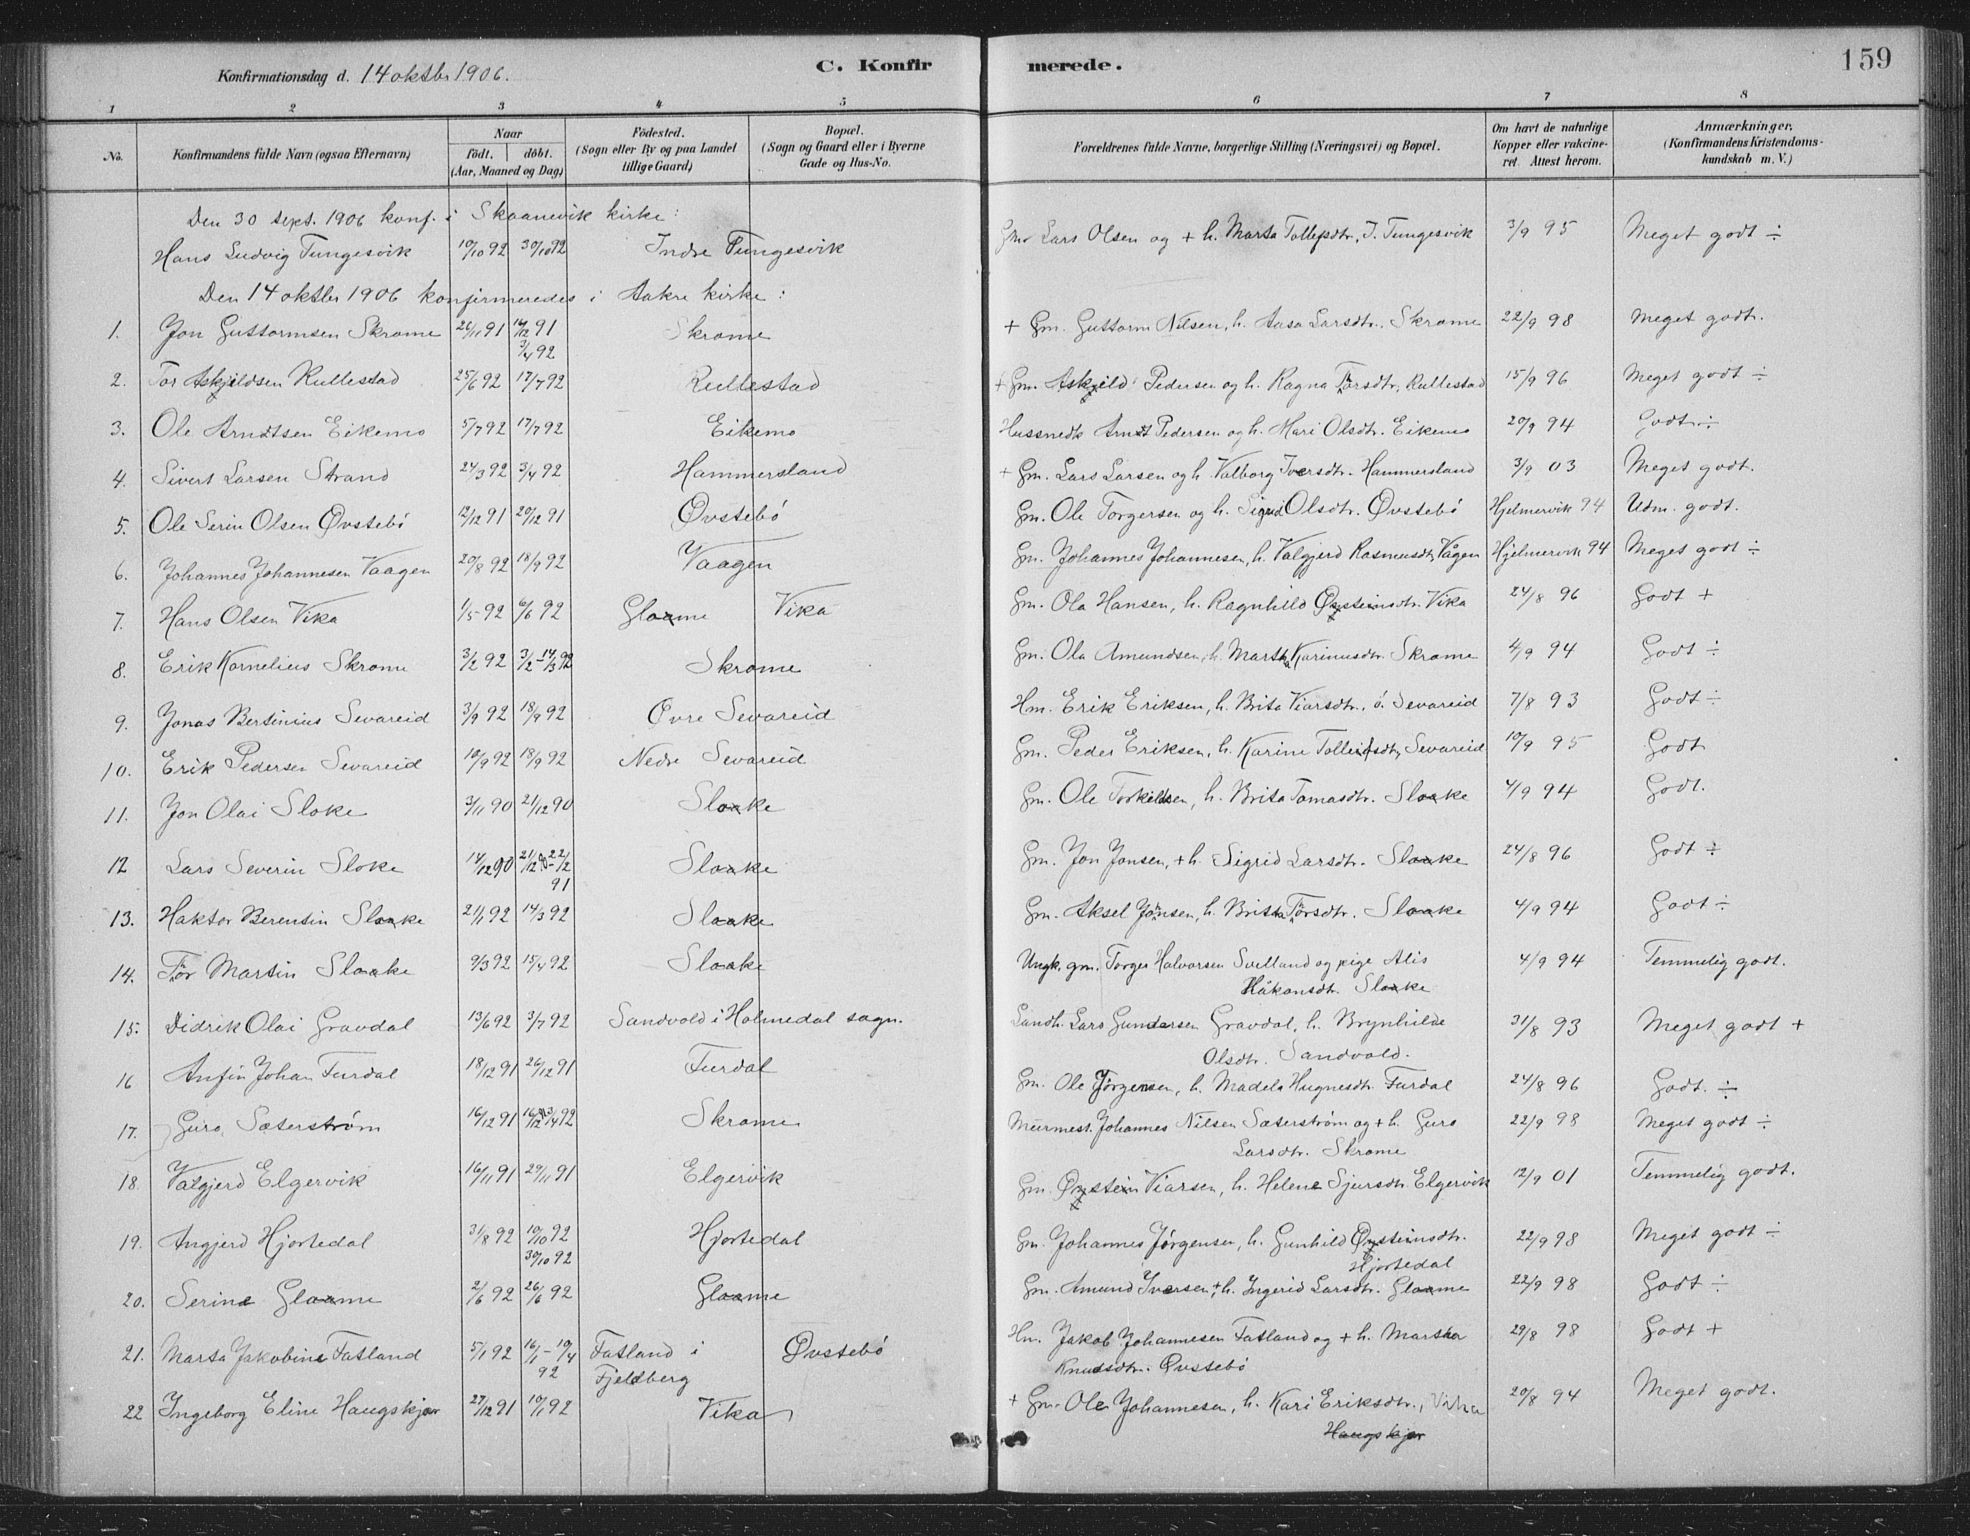 Konfirmationsdag d. 14 oktbr 1906.
C. Konfirmerede.
159
1 2 3 4 5 6 7 8
No. Konfirmandens fulde Navn (ogsaa Efternavn) Naar født. døbt. (Aar, Maaned og Dag) Fødested. (Sogn eller By og paa Landet tillige Gaard) Bopæl. (Sogn og Gaard eller i Byerne Gade og Hus-No. Forældrenes fulde Navne, borgerlige Stilling (Næringsvei) og Bopæl. Om havt de naturlige Kopper eller vakcineret. Attest herom. Anmærkninger. (Konfirmandens Kristendomskundskab m. V.)
Den 30 sept. 1906 konf. i Skaanevik kirke:
Hans Ludvig Tungesvik 10/10 92 30/10 92 Indre Tungesvik Gm Lars Olsen og + h. Marta Tollefsdtr. I. Tungesvik 3/9 95 Meget godt ÷
Den 14 oktbr 1906 konfirmeredes i Aakre kirke:
1. Jon Guttormsen Skrome 26/11 91 14/12 91 3/4 92 Skrome + Gm. Guttorm Nilsen, h. Aasa Larsdtr. Skrome 22/9 98 Meget godt.
2. Tor Askjeldsen Rullestad 25/6 92 17/7 92 Rullestad + Gm. Askjeld Pedersen og h. Ragna Torsdtr, Rullestad 15/9 96 Meget godt ÷
3. Ole Arndtsen Eikemo 5/7 92 17/7 92 Eikemo Husmedh Arndt Pedersen og h. Mari Olsdtr. Eikemo 20/9 94 Godt ÷
4. Sivert Larsen Strand 24/3 92 3/4 92 Hammersland + Gm. Lars Larsen og h. Valborg Iversdtr. Hammersland 3/9 03 Meget godt.
5. Ole Serin Olsen Øvstebö 12/12 91 20/12 91 Øvstebö Gm. Ole Torgersen og h. Sigrid Olsdtr. Øvstebö Hjelmervik 94 Udm. godt.
6. Johannes Johannesen Vaagen 20/8 92 18/9 92 Vaagen Gm. Johannes Johannesen, h. Valgjerd Rasmusdtr, Vågen Hjelmervik 94 Meget godt ÷
7. Hans Olsen Vika 1/5 92 6/6 92 Gloame Vika Gm. Ola Hansen, h. Ragnhild Øysteinsdtr. Vika 24/8 96 Godt +
8. Erik Kornelius Skrome 3/2 92 3/2-14/3 92 Skrome Gm. Ola Amundsen, h. Martha Karinusdtr. Skrome 4/9 94 Godt ÷
9. Jonas Bertinius Sevareid 3/9 92 18/9 92 Övre Sevareid Hm. Erik Eriksen, h. Brita Viarsdtr., ö. Sevareid 7/8 93 Godt ÷
10. Erik Pedersen Sevareid 10/9 92 18/9 92 Nedre Sevareid Gm. Peder Eriksen, h. Karine Tollefsdtr, Sevareid 10/9 95 Godt
11. Jon Olai Sloke 3/11 90 21/12 90 Sloake Gm. Ole Torkildsen, h. Brita Tomasdtr. Sloake 4/9 94 Godt.
12 Lars Severin Sloke 14/12 90 21/12 90-22/2 91 Sloake Gm. Jon Jonsen, + h. Sigrid Larsdtr. Sloake 24/8 96 Godt ÷
13. Haktor Berentin Sloake 21/1 92 14/3 92 Sloake Gm. Aksel Jönsen, h. Britha Törsdtr. Sloake 4/9 94 Godt ÷
14. Tör Martin Sloake 9/3 92 15/4 92 Sloake Ungk. gm. Torger Halvorsen Svelland og pige Alis Håkonsdtr. Sloake 4/9 94 Temmelig godt.
15. Didrik Olai Gravdal 13/6 92 3/7 92 Sandvold i Holmedal sogn. Landh. Lars Gundersen Gravdal, h. Brynhilde Olsdtr. Sandvold. 31/8 93 Meget godt +
16 Anfin Johan Furdal 18/12 91 26/12 91 Furdal Gm. Ole Jörgensen, h. Madela Hugnesdtr Furdal 24/8 96 Godt. ÷
17. Guro Sæterström 16/12 91 16/12 91 3/4 92 Skrome Murmest. Johannes Nilsen Sæterström og + h. Guro Larsdtr. Skrome 22/9 98 Meget godt ÷
18. Valgjerd Elgervik 16/11 91 29/11 91 Elgervik Gm. Øystein Viarsen, h. Helene Sjursdtr Elgervik 12/9 01 Temmelig godt.
19. Angjerd Hjortedal 31/8 92 10/10 92 30/10 92 Hjortedal Gm. Johannes Jørgensen, h. Gunhild Øysteinsdtr. Hjortedal 22/9 98 Meget godt ÷
20. Serine Gloame 2/6 92 26/6 92 Gloame Gm. Amund Iversen, + h. Ingerid Larsdtr. Gloame 22/9 98 Godt ÷
21. Marta Jakobine Fatland 5/1 92 16/1-10/4 92 Fatland i Fjeldberg Øvstebö Hm. Jakob Johannesen Fatland og + h. Martha Knudsdtr. Øvstebö 29/8 98 Godt +
22 Ingeborg Eline Haugskjær 27/12 91 10/1 92 Vika + Gm. Ole Johannesen, h. Kari Eriksdtr., Vika Haugskjær 20/8 94 Meget godt.